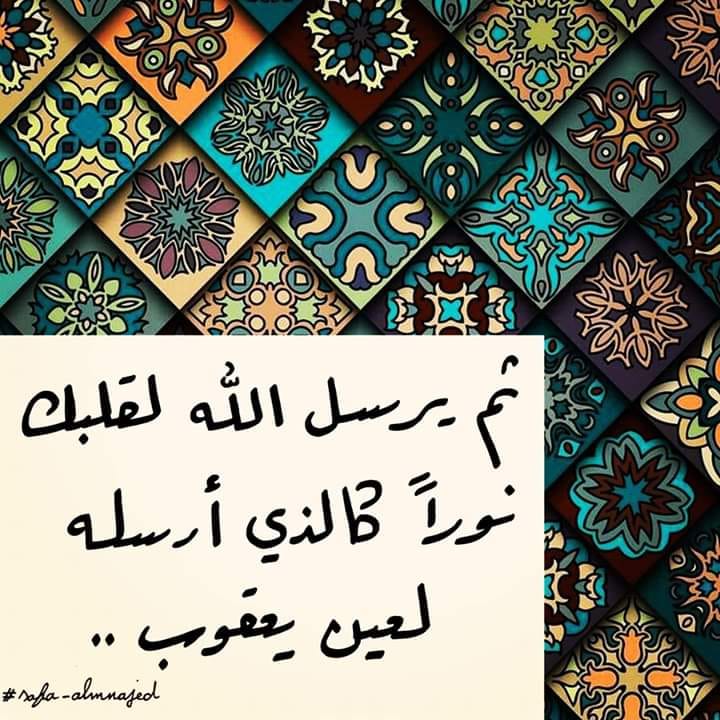 ثم يرسل الله لقلبك
نوراً كالذي أرسله
لعين يعقوب ..
#safa-almnajed